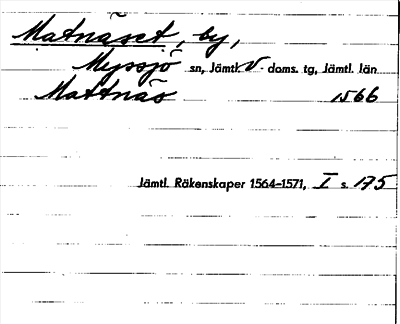 Matnäset, by,
Myssjö sn, Jämtl. V. doms. tg, Jämtl. län
Mattnäs 1566
Jämtl. Räkenskaper 1564–1571, I s. 175